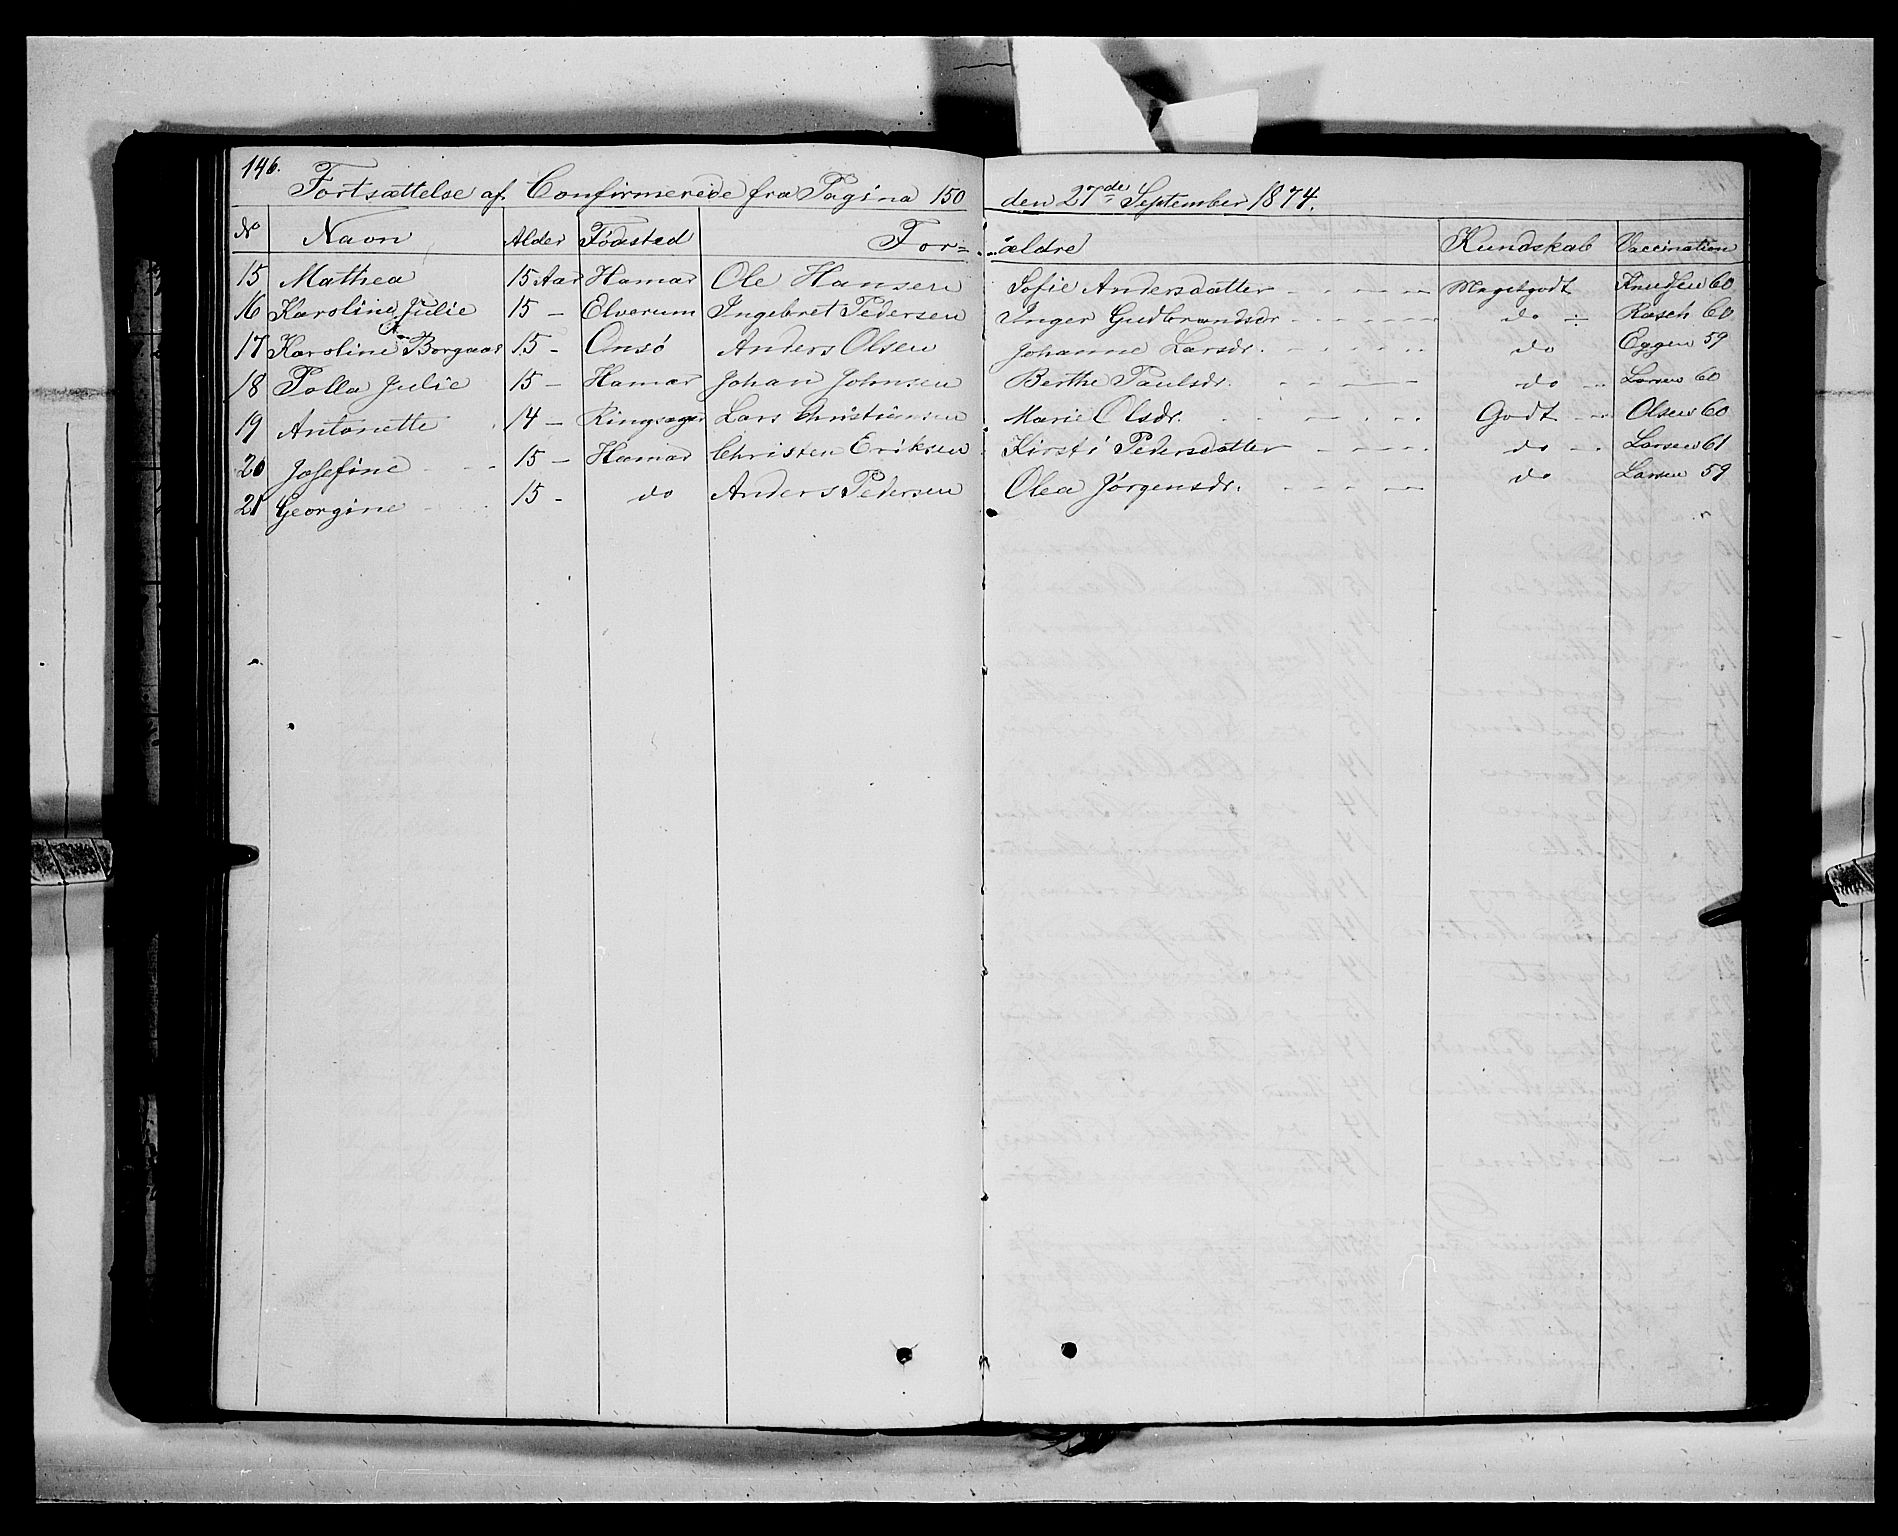 146.
Fortsættelse af Confirmerede fra Pagina 150 den 27de September 1874.
No Navn Alder Fødested For= ældre Kundskab Vaccination
15 Mathea 15 Aar Hamar Ole Hansen Sofie Andersdatter - - - - Megetgodt Knudsen 60
16 Karoline Julie 15 - Elverum Ingebret Pedersen Inger Gudbrandsdr - - - - do Rasch 60
17 Karoline Borgaas 15 - Onsö Anders Olsen Johanne Larsdr. - - - - do Eggen 59
18 Polla Julie 15 - Hamar Johan Johnsen Berthe Paulsdr. - - - do - Larsen 60
19 Antonette 14 - Ringsager Lars Christiansen Marie Olsdr. - - - - Godt - Olsen 60
20 Josefine - - - 15 - Hamar Christen Eriksen Kirsti Pedersdatter - - - - do - Larsen 61
21 Georgine - - 15 - do Anders Pedersen Olea Jørgensdr. - - - - do Larsen 59